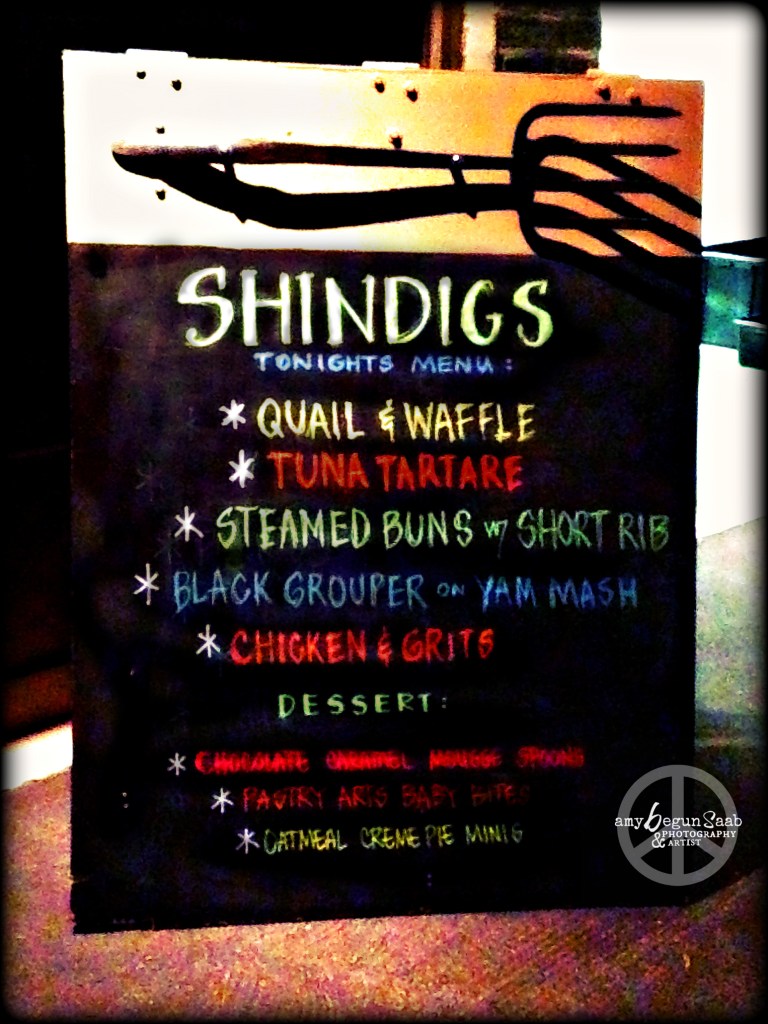 SHINDIGS
TONIGHTS MENU:
* QUAIL & WAFFLE
* TUNA TARTARE
* STEAMED BUNS w/ SHORT RIB
* BLACK GROUPER ON YAM MASH
* CHICKEN & GRITS
DESSERT:
* CHOCOLATE CARAMEL MOUSSE SPOONS
* PASTRY ARTS BABY BITES
* OATMEAL CREME PIE MINIS
amy begun Saab
PHOTOGRAPHY
& ARTIST